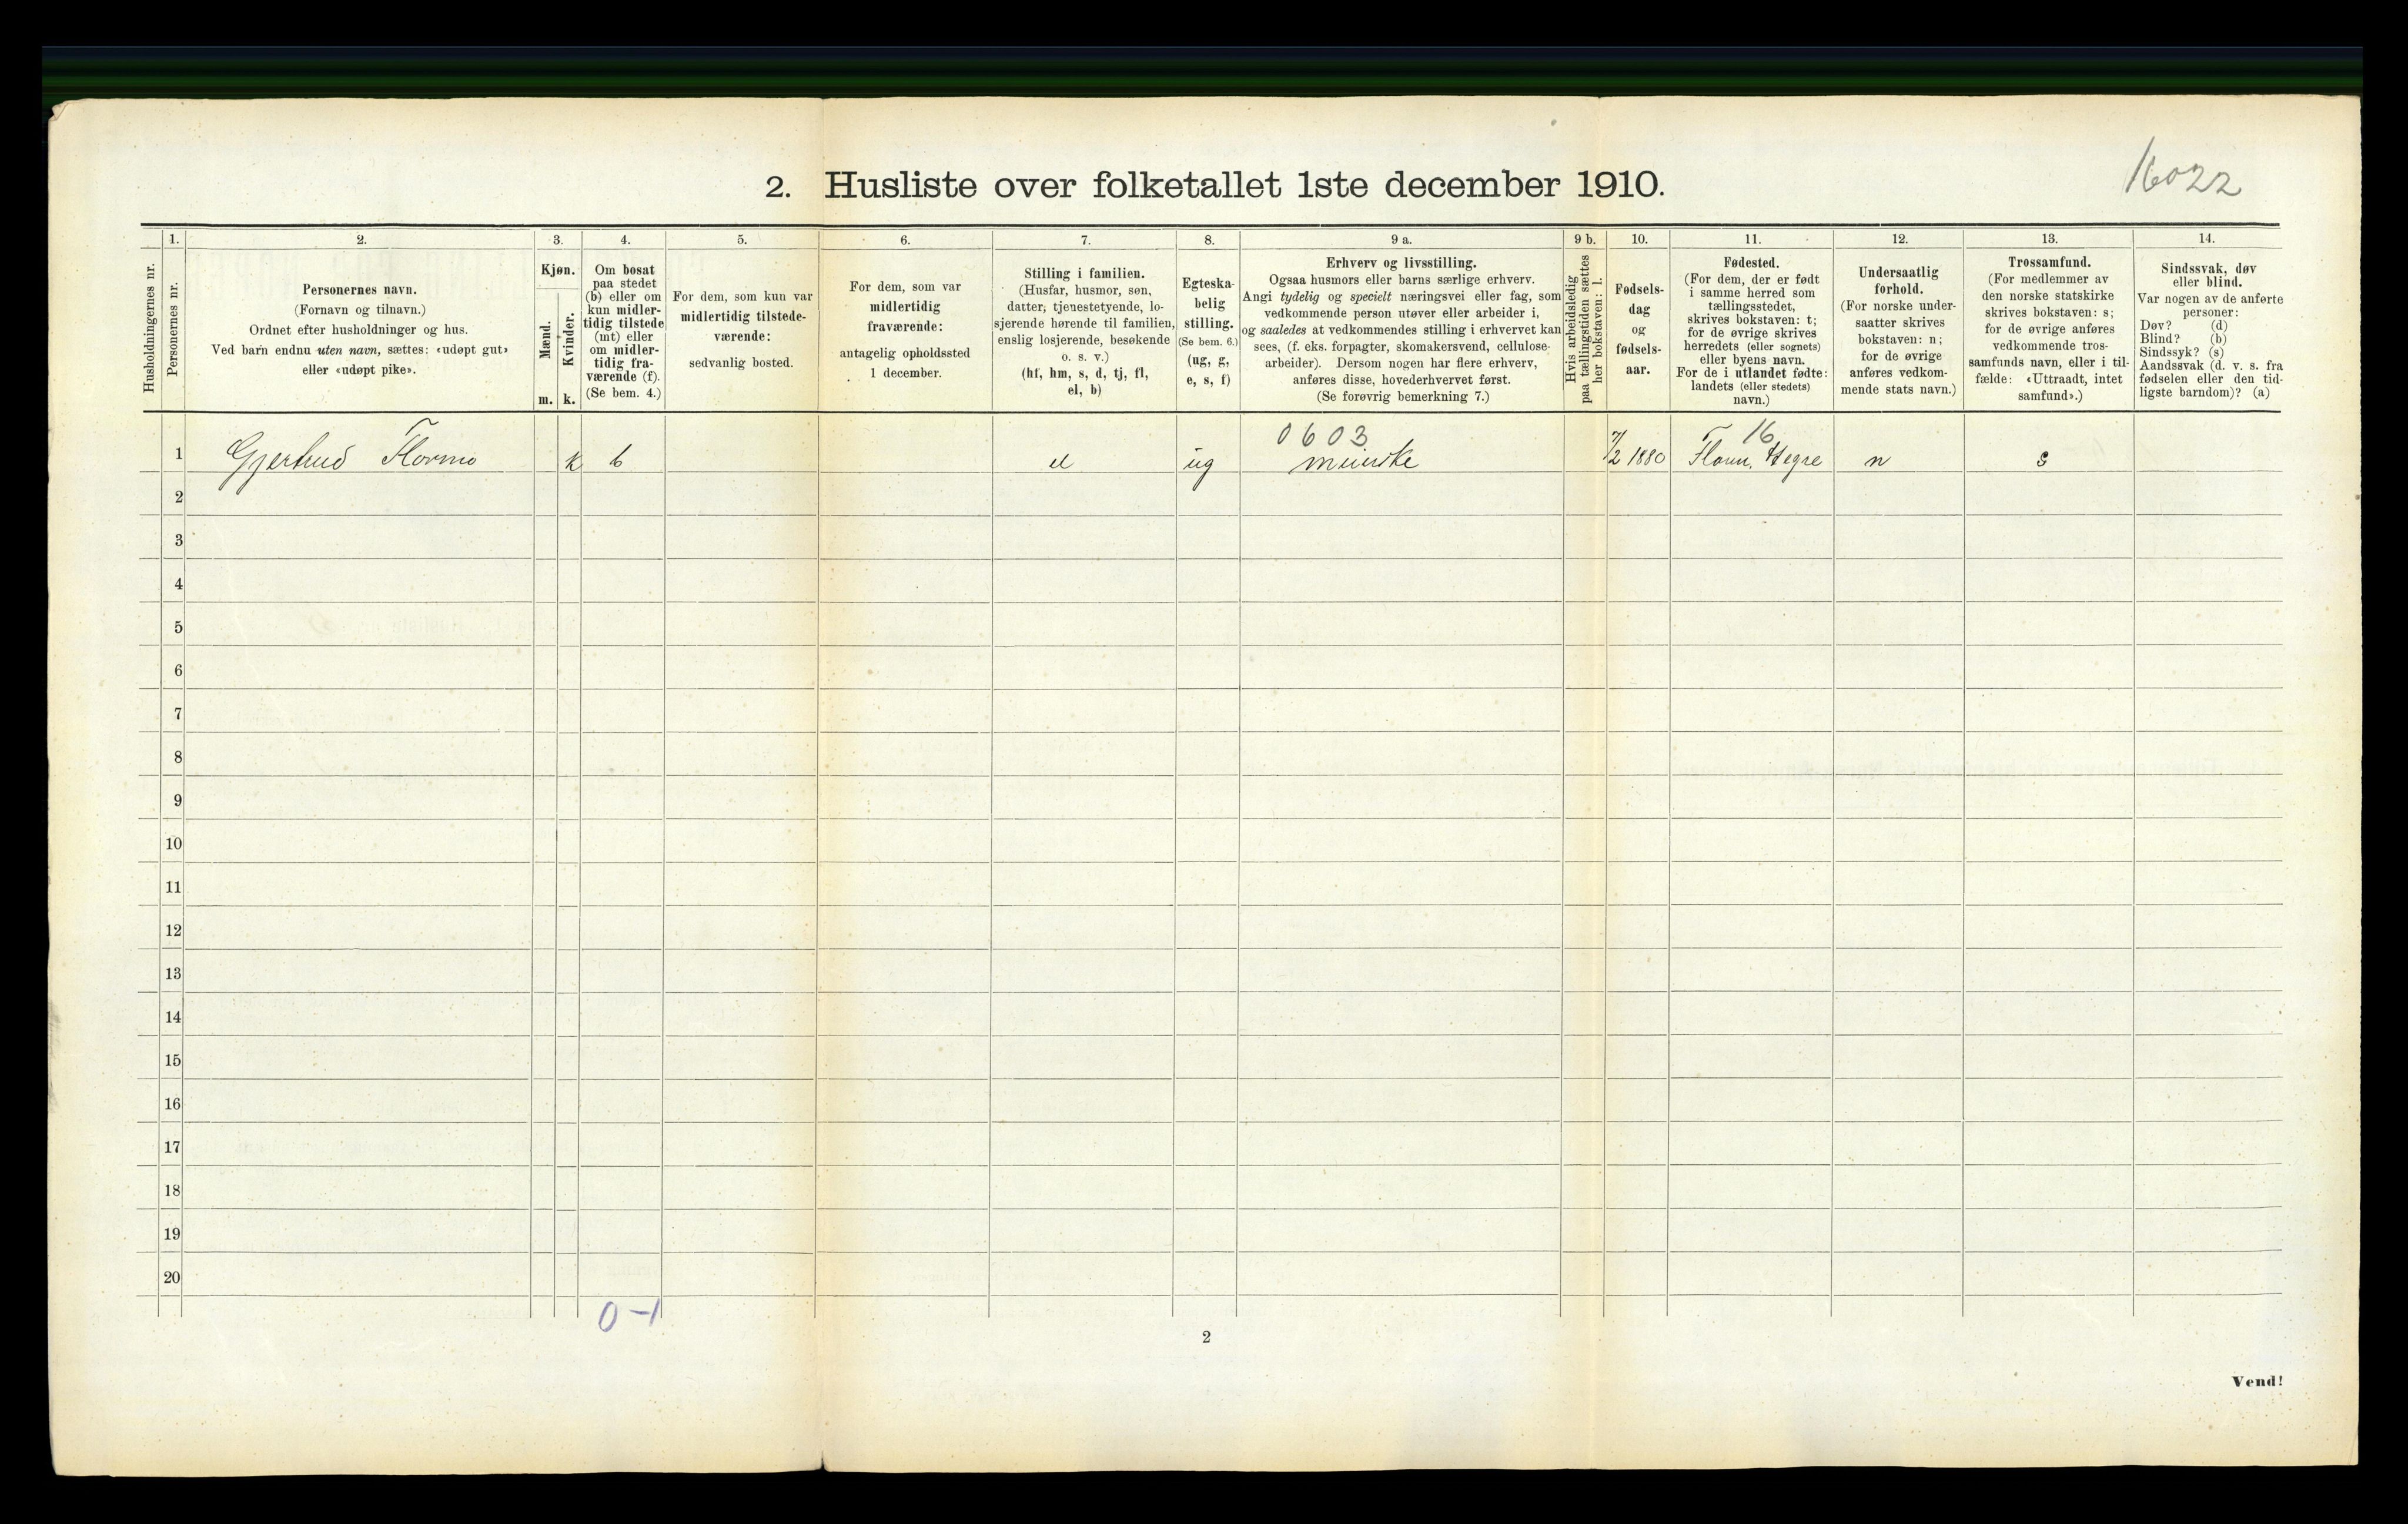 16022
2. Husliste over folketallet 1ste december 1910.
Husholdningernes nr.
1.
Personernes nr.
2.
Personernes navn.
(Fornavn og tilnavn.)
Ordnet efter husholdninger og hus.
Ved barn endnu uten navn, sættes: «udøpt gut»
eller «udøpt pike».
3.
Kjøn.
Mænd.
m.
Kvinder.
k.
4.
Om bosat
paa stedet
(b) eller om
kun midler-
tidig tilstede
(mt) eller
om midler-
tidig fra-
værende (f).
(Se bem. 4.)
5.
For dem, som kun var
midlertidig tilstede-
værende:
sedvanlig bosted.
6.
For dem, som var
midlertidig
fraværende:
antagelig opholdssted
1 december.
7.
Stilling i familien.
(Husfar, husmor, søn,
datter, tjenestetyende, lo-
sjerende hørende til familien,
enslig losjerende, besøkende
o. s. v.)
(hf, hm, s, d, tj, fl,
el, b)
8.
Egteska-
belig
stilling.
(Se bem. 6.)
(ug, g,
e, s, f)
9 a.
Erhverv og livsstilling.
Ogsaa husmors eller barns særlige erhverv.
Angi tydelig og specielt næringsvei eller fag, som
vedkommende person utøver eller arbeider i,
og saaledes at vedkommendes stilling i erhvervet kan
sees, (f. eks. forpagter, skomakersvend, cellulose-
arbeider). Dersom nogen har flere erhverv,
anføres disse, hovederhvervet først.
(Se forøvrig bemerkning 7.)
9 b.
Hvis arbeidsledig
paa tællingstiden sættes
her bokstaven: l.
10.
Fødsels-
dag
og
fødsels-
aar.
11.
Fødested.
(For dem, der er født
i samme herred som
tællingsstedet,
skrives bokstaven: t;
for de øvrige skrives
herredets (eller sognets)
eller byens navn.
For de i utlandet fødte:
landets (eller stedets)
navn.)
12.
Undersaatlig
forhold.
(For norske under-
saatter skrives
bokstaven: n;
for de øvrige
anføres vedkom-
mende stats navn.)
13.
Trossamfund.
(For medlemmer av
den norske statskirke
skrives bokstaven: s;
for de øvrige anføres
vedkommende tros-
samfunds navn, eller i til-
fælde: «Uttraadt, intet
samfund».)
14.
Sindssvak, døv
eller blind.
Var nogen av de anførte
personer:
Døv? (d)
Blind? (b)
Sindssyk? (s)
Aandssvak (d. v. s. fra
fødselen eller den tid-
ligste barndom)? (a)
0603 16
1 Gjertrud Flormo k b el ug 7/2 1880 Hegre n s
2
3
4
5
6
7
8
9
10
11
12
13
14
15
16
17
18
19
20
0-1
2
Vend!